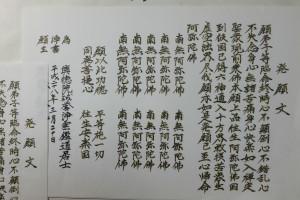 発願文
願弟子等臨命終時心不顛倒心不錯乱心
不失念身心無諸苦痛身心快楽如入禅定
聖衆現前乗佛本願上品往生阿弥陀佛国
到彼国已得六神通入十方界救摂苦衆生
虚空法界尽我願亦如是発願已至心帰命
阿弥陀佛
南無阿弥陀佛 南無阿弥陀佛
南無阿弥陀佛 南無阿弥陀佛
南無阿弥陀佛 南無阿弥陀佛
南無阿弥陀佛 南無阿弥陀佛
南無阿弥陀佛 南無阿弥陀佛
願以此功徳 平等施一切
同発菩提心 往生安楽国
為
浄書
居士
平成二八年三月二十日
願主
発願文
願弟子等臨命終時心不顛倒心